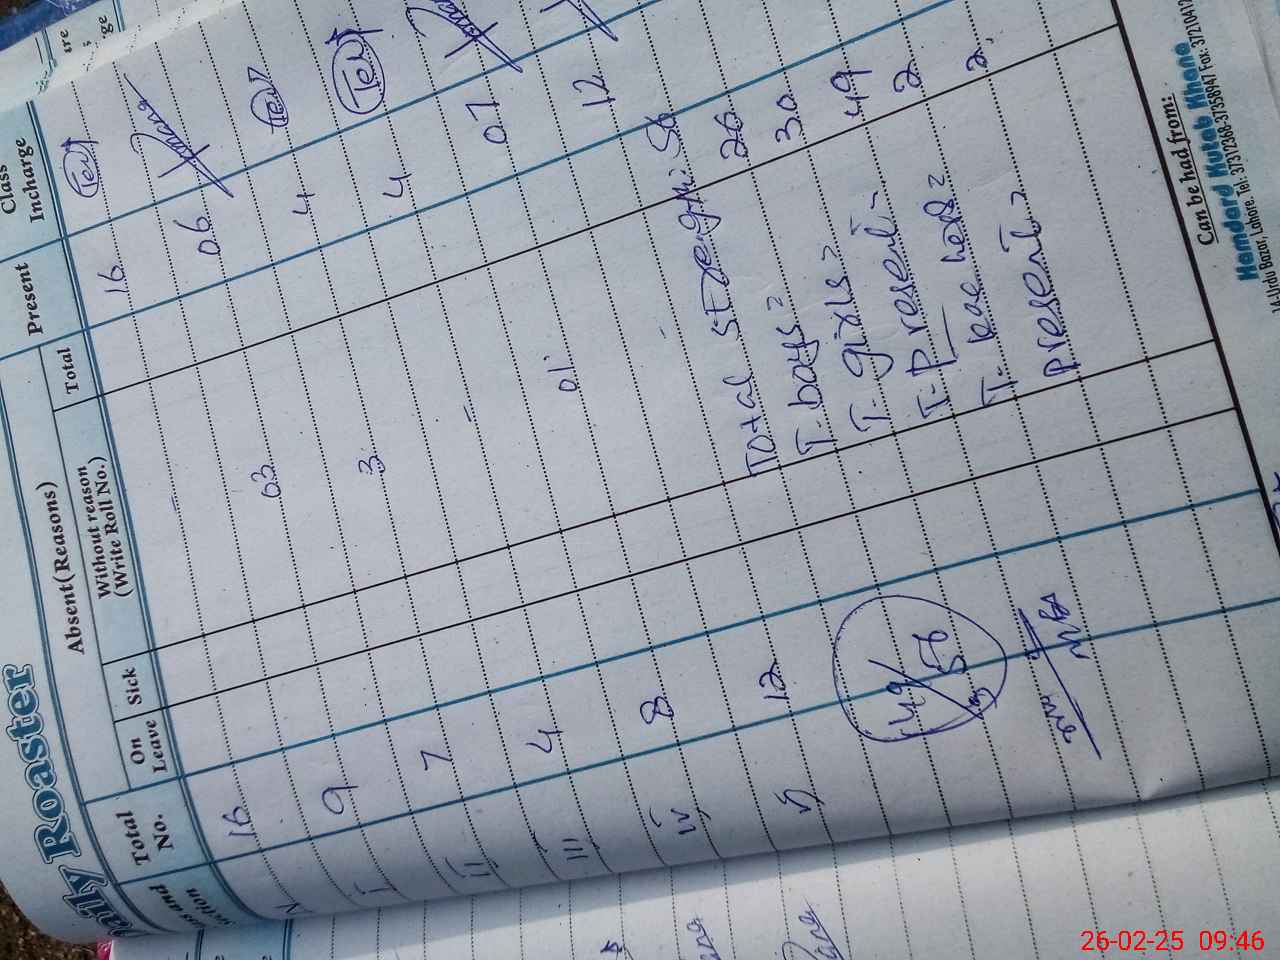 Daily Roaster
Total No.
Absent (Reasons)
On Leave
Sick
Without reason (Write Roll No.)
Total
Present
Class Incharge
N 16 - 16
I 9 03 06
II 7 3 4
III 4 - 4
IV 8 01 07
V 12 12
Total strength: 56
T. boys = 26
T. girls = 30
T. Present - 49
T. teachers = 2
T. Present = 2
49/56
Can be had from:
Hamdard Kutab Khana
14 Urdu Bazar, Lahore. Tel: 37312368-37358947 Fax: 3721041
26-02-25 09:46